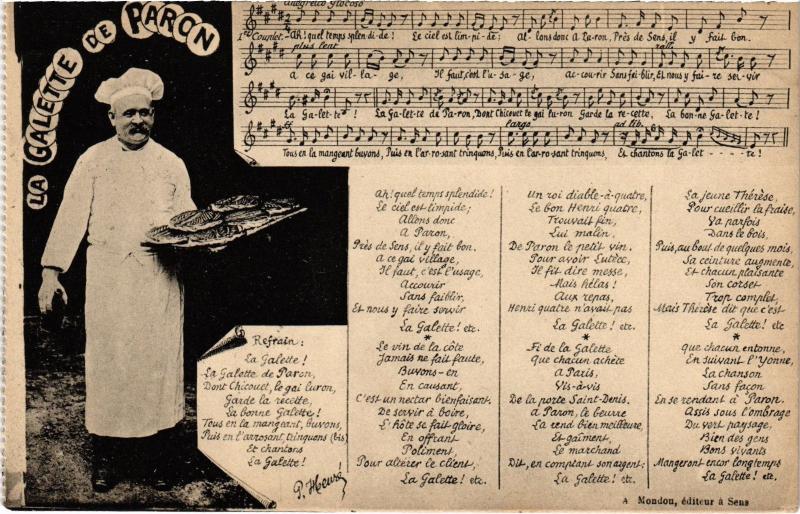 LA GALETTE DE PARON
Allegretto giocoso
1er Couplet. -Ah! quel temps splen-di-de! Le ciel est lim-pi-de; Al-lons donc A Pa-ron, Près de Sens, il y fait bon.
plus lent rall.
A ce gai vil-la-ge, Il faut, c'est l'u-sa-ge, ac-cou-rir Sans fai-blir, Et nous y fai-re ser-vir
La Ga-let-te! La Ga-let-te de Pa-ron, Dont Chicouet le gai lu-ron Garde la re-cette, La bon-ne Ga-let-te!
largo ad lib.
Tous en la mangeant buvons, Puis en l'ar-ro-sant trinquons, Puis en l'ar-ro-sant trinquons, Et chantons la Ga-let----te!
Ah! quel temps splendide!
Le ciel est limpide;
Allons donc
A Paron,
Près de Sens, il y fait bon.
A ce gai village,
Il faut, c'est l'usage,
Accourir
Sans faiblir,
Et nous y faire servir
La Galette! etc.
*
Le vin de la côte
Jamais ne fait faute,
Buvons-en
En causant,
C'est un nectar bienfaisant.
De servir à boire,
L'hôte se fait gloire,
En offrant
Poliment,
Pour altérer le client,
La Galette! etc.
Un roi diable-à-quatre,
Le bon Henri quatre,
Trouvait fin,
Lui malin.
De Paron le petit vin.
Pour avoir Lutèce,
Il fit dire messe,
Mais hélas!
Aux repas,
Henri quatre n'avait pas
La Galette! etc.
*
Fi de la Galette
Que chacun achète
A Paris,
Vis-à-vis
De la porte Saint-Denis.
A Paron, le beurre
La rend bien meilleure,
Et gaîment,
Le marchand
Dit, en comptant son argent:
La Galette! etc.
La jeune Thérèse,
Pour cueillir la fraise,
Va parfois
Dans le bois,
Puis, au bout de quelques mois,
Sa ceinture augmente,
Et chacun plaisante
Son corset
Trop complet,
Mais Thérèse dit que c'est
La Galette! etc.
*
Que chacun entonne,
En suivant l'Yonne,
La chanson
Sans façon
En se rendant à Paron.
Assis sous l'ombrage
Du vert paysage,
Bien des gens
Bons vivants
Mangeront encor longtemps
La Galette! etc.
Refrain:
La Galette!
La Galette de Paron,
Dont Chicouet, le gai luron,
Garde la recette,
La bonne Galette!
Tous en la mangeant, buvons,
Puis en l'arrosant, trinquons (bis)
Et chantons
La Galette!
A Mondou, éditeur à Sens